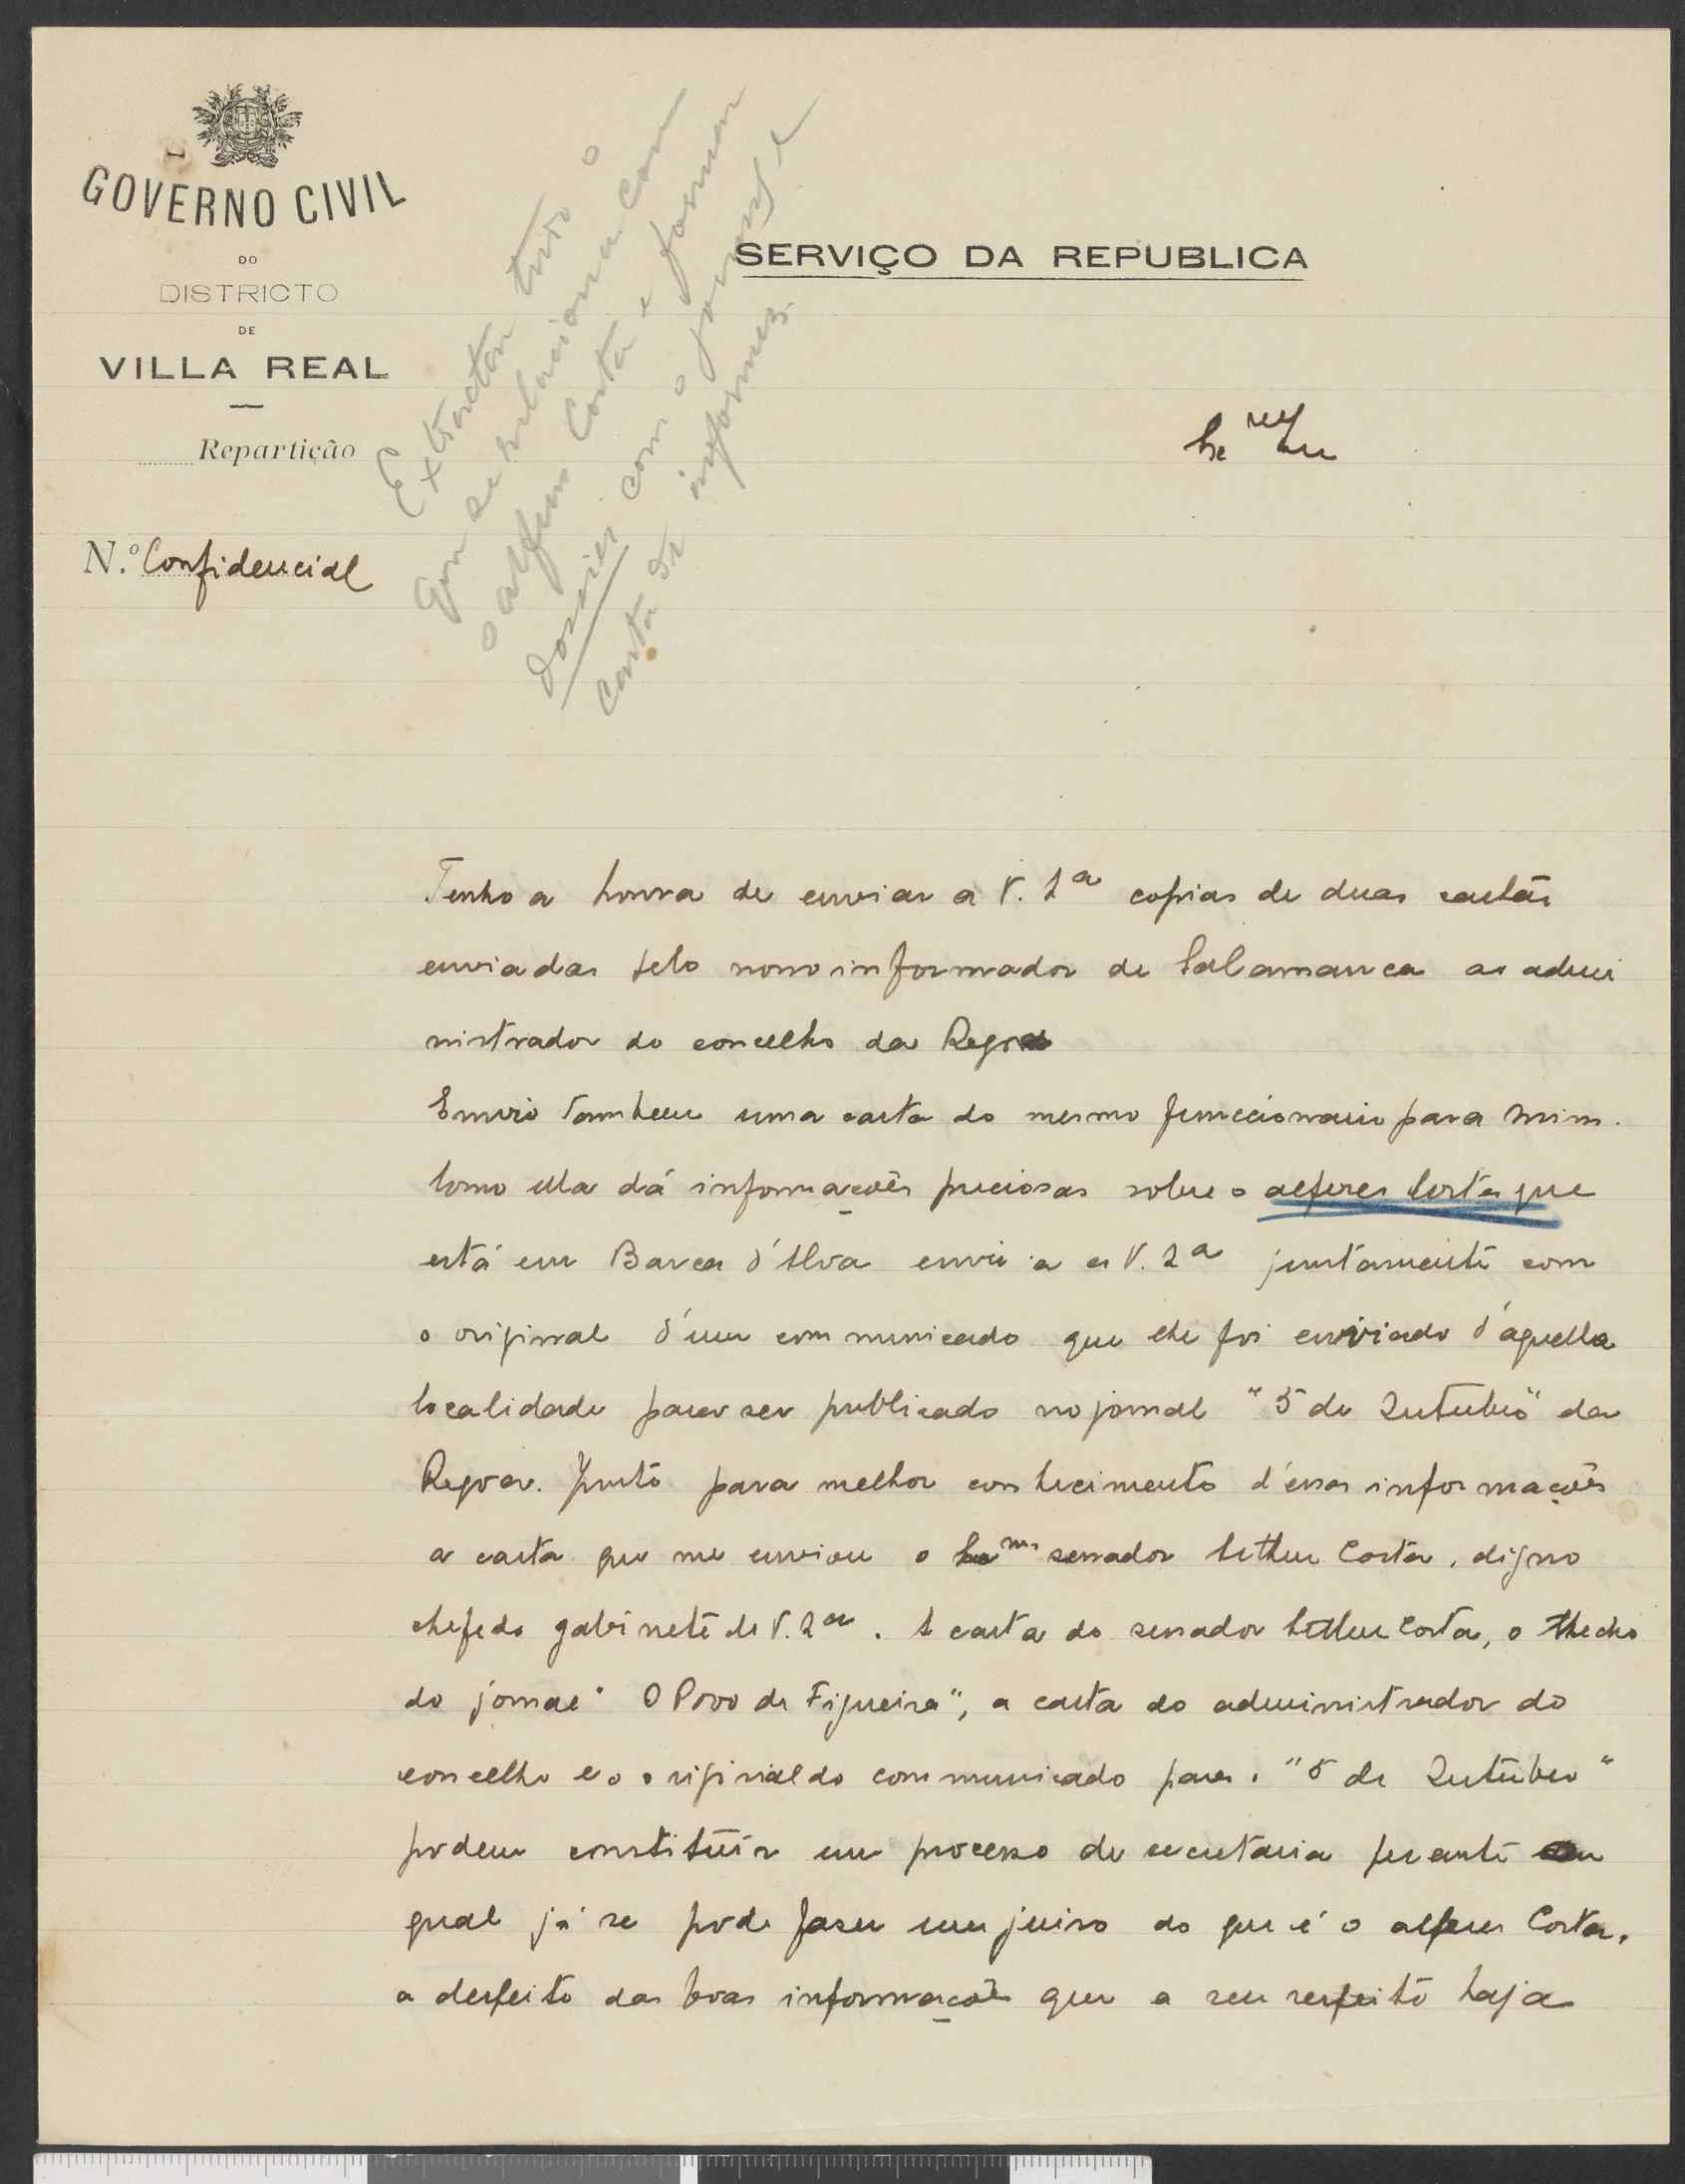 GOVERNO CIVIL
DO
DISTRICTO
DE
VILLA REAL
Repartição
N.º Confidencial
Extractar tudo o
que se relacionar com
o alferes Costa e formar
dossier com o jornal e
carta de informes.
SERVIÇO DA REPUBLICA
Tenho a honra de enviar a V. Eª copias de duas cartas
enviadas pelo nosso informador de Salamanca ao admi
nistrador do concelho da Regoa
Envio tambem uma carta do mesmo funccionario para mim.
Como ella dá informações preciosas sobre o alferes Costa que
está em Barca d'Alva envio a a V. Eª juntamente com
o original d'um communicado que lhe foi enviado d'aquella
localidade para ser publicado no jornal "5 de Outubro" da
Regoa. Junto para melhor conhecimento d'essas informações
a carta que me enviou o Exmo senador Arthur Costa, digno
chefe do gabinete de V. Eª. A carta do senador Arthur Costa, o trecho
do jornal "O Povo da Figueira", a carta do administrador do
concelho e o original do communicado para o "5 de Outubro"
podem constituir um processo de secretaria perante o
qual já se pode fazer um juizo do que é o alferes Costa,
a despeito das boas informações que a seu respeito haja